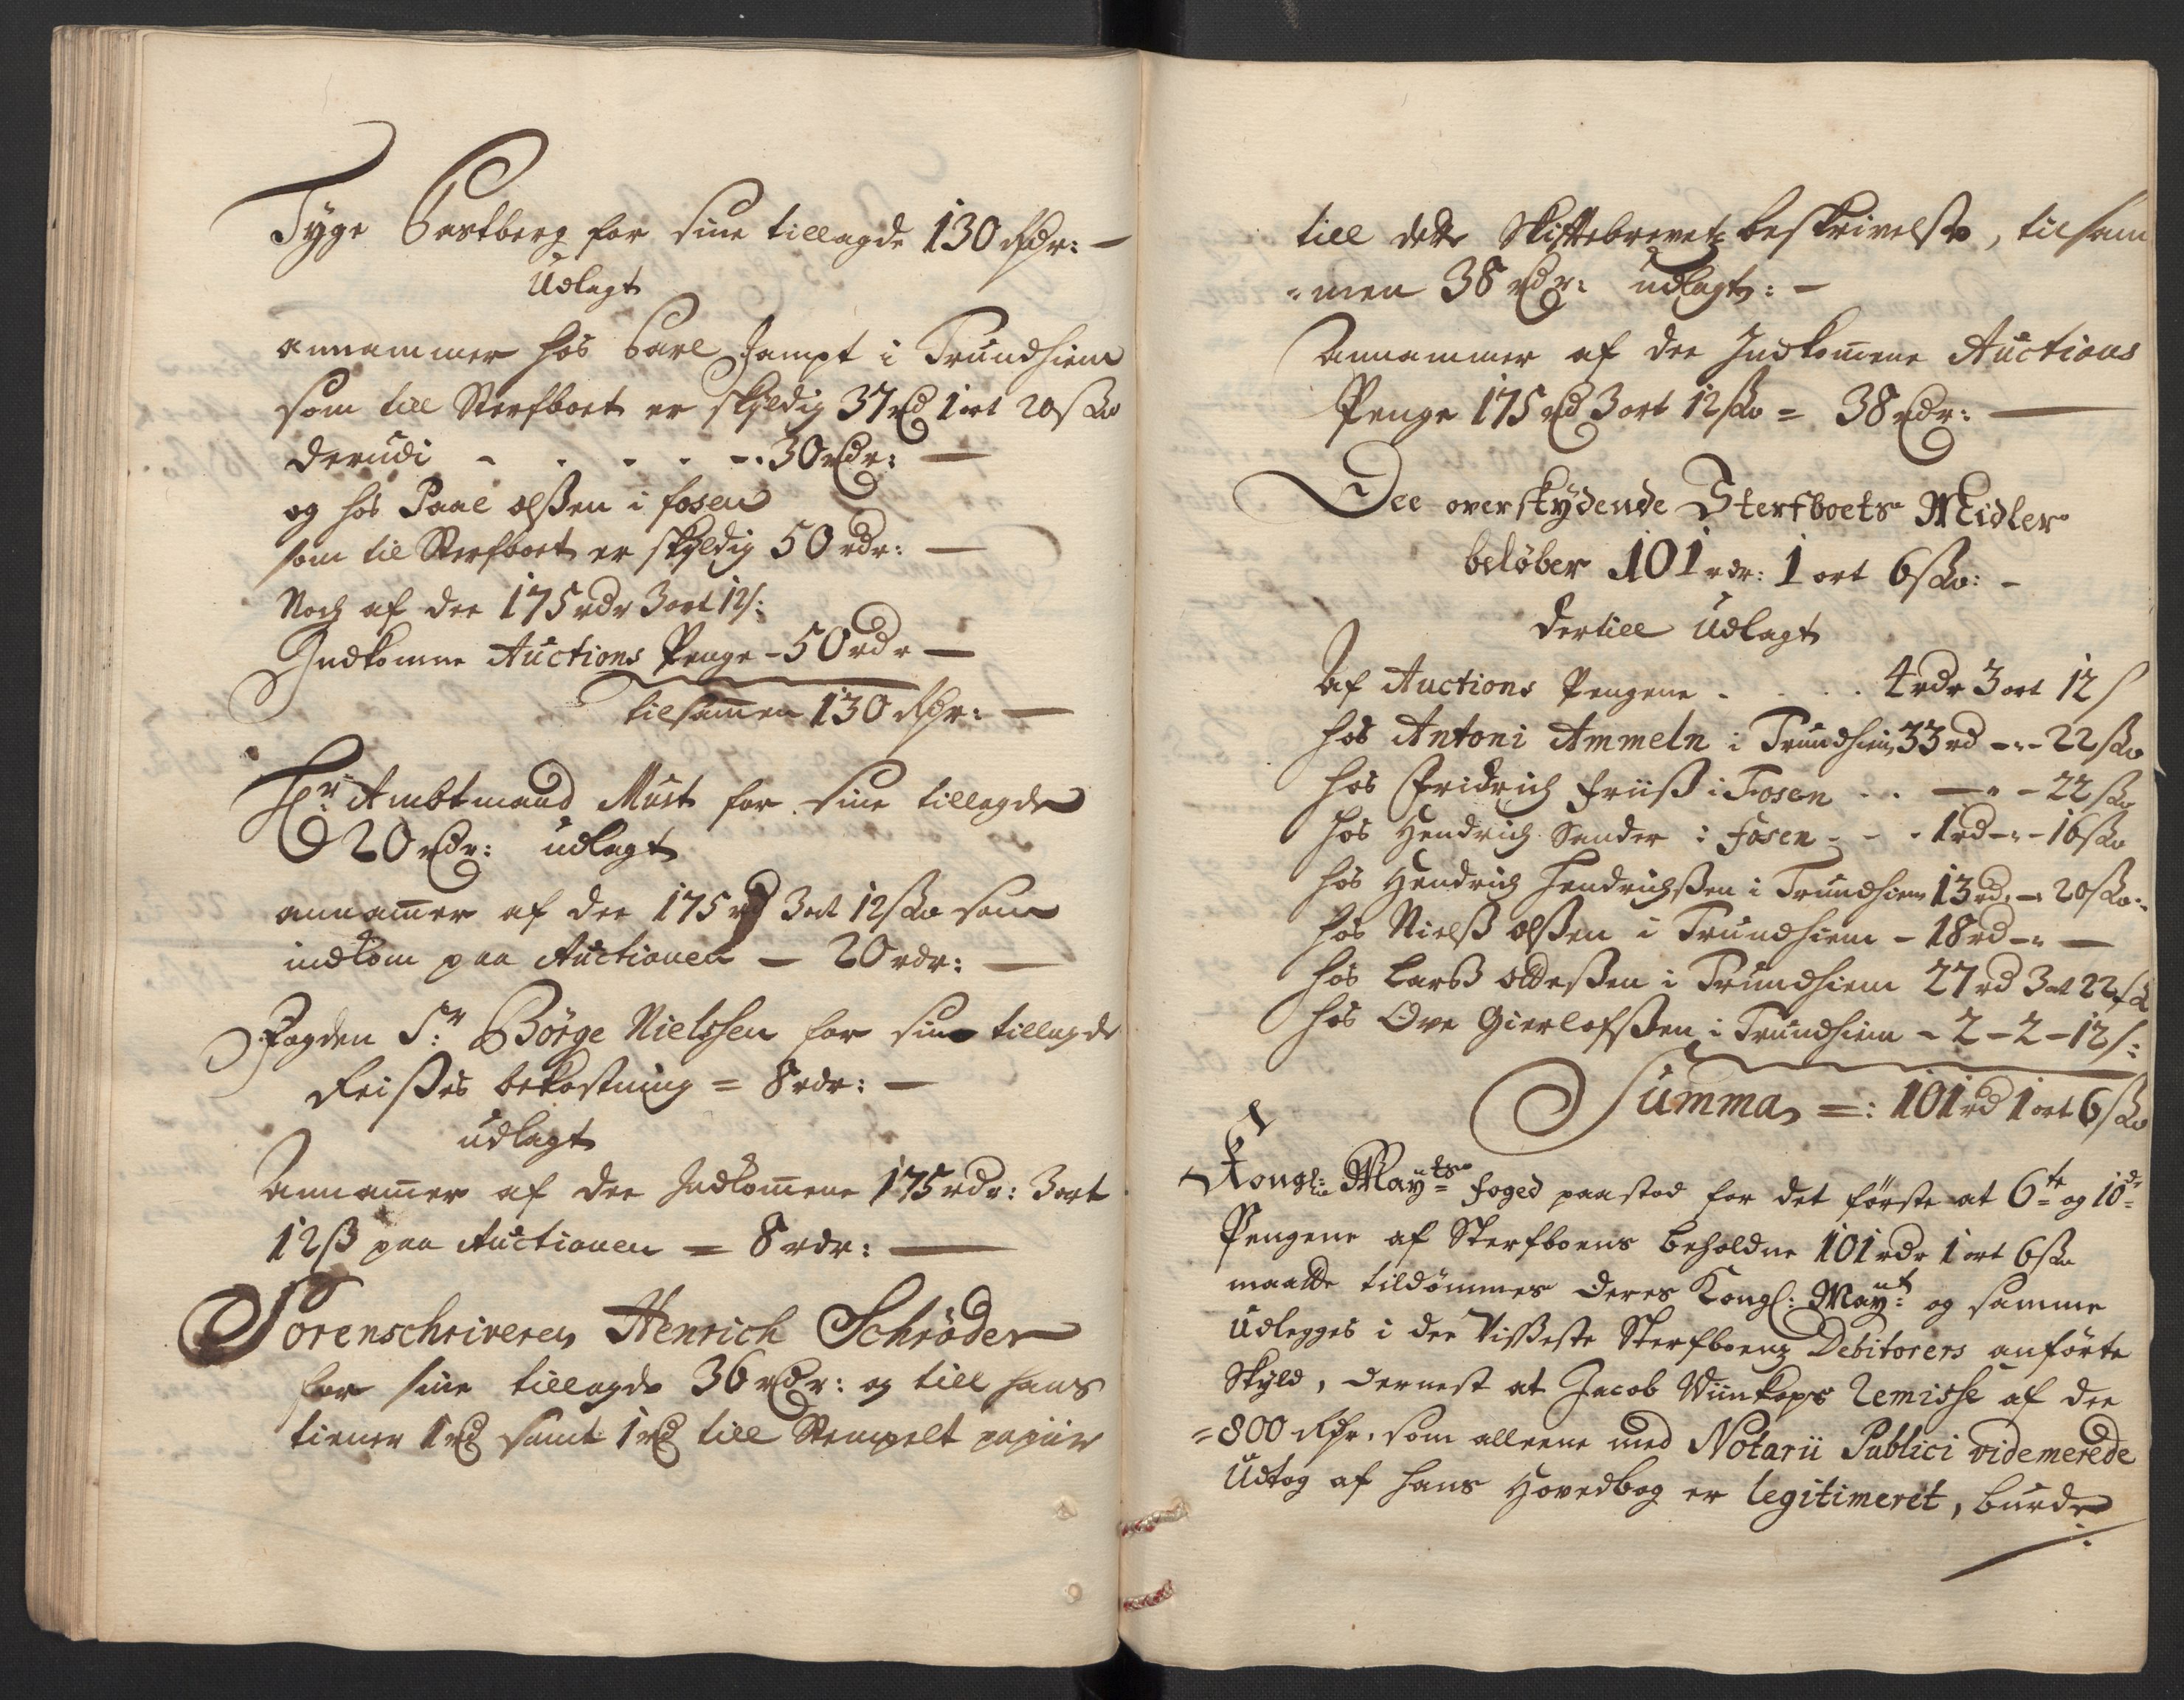 Tyge Castberg for sine tillagde 130 Rdr: –
Udlagt
annammer hos Carl Jampt i Trundhiem
som till Sterfboet er skyldig 37 rd 1 ort 20 sk
derudi - - - - -. 30 rdr: —
og hos Paal olssen i fosen
som til Sterfboet er skyldig 50 rdr: —
Noch af dee 175 rdr 3 ort 12 s:
Indkomne Auctions Penge – 50 rdr —
tilsamen 130 Rdr: —
Hr: Ambtmand Must for sine tillagde
20 rdr: udlagt
annamer af dee 175 rd 3 ort 12 sk som
indkom paa Auctionen — 20 rdr: —
Fogden Sr: Börge Nielssen for sine tillagde
Reisses bekostning = 8 rdr: —
udlagt
Annamer af dee Indkomene 175 rdr: 3 ort
12 ß paa Auctionen = 8 rdr: —
Sorenschriveren Henrich Schröder
for sine tillagde 36 rdr: og till hans
tiener 1 rd samt 1 rd till Stempelt papiir
till dette Skiftebrevetz beskrivelse, tilsam
=men 38 rdr: udlagt: –
Annammer af dee Indkomene Auctions
Penge 175 rd 3 ort 12 sk = 38 rdr: —
Dee overskydende Sterfboets Midler
beløber 101 rdr: 1 ort 6 sk: –
dertill Udlagt
Af Auctions Pengene - . . . 4 rdr 3 ort 12 s
hos Antoni Ammeln i Trundhiem 33 rd –"– 22 sk
hos Fridrich Friiss i Fosen . . —"– 22 sk
hos Hendrich Sander i Fosen - - - 1 rd –"– 16 sk
hos Hendrich Hendrichssen i Trundhiem 13 rd. –" 20 sk:
hos Nielss olssen i Trundhiem – 18 rd –" —
hos Larss oldessen i Trundhiem 27 rd 3 ort 22 sk
hos Ove Gierlofssen i Trundhiem – 2 – 2 – 12 s:
Summa =: 101 rd 1 ort 6 sk
Kongl: Mayts foged paastod for det förste at 6te og 10de
Pengene af Sterfboens beholdne 101 rdr 1 ort 6 sk
maatte tildömmes deres Kongl: Mayt: og samme
Udlegges i dee Visseste Sterfboens Debitorers anförte
Skyld, dernest at Jacob Wiinkops Remisse af dee
=800 Rdr. som alleene med Notarii Publici videmerede
Udtog af hans Hovedbog er legitimeret, burde